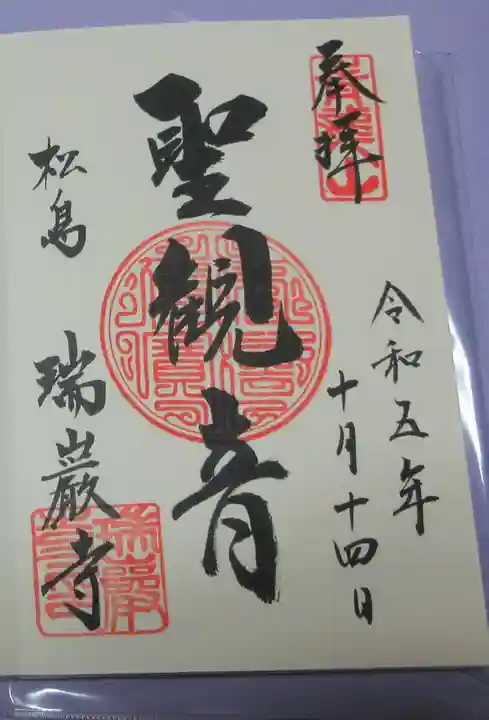 奉拝
令和五年
十月十四日
聖観音
松島 瑞巌寺
瑞巌